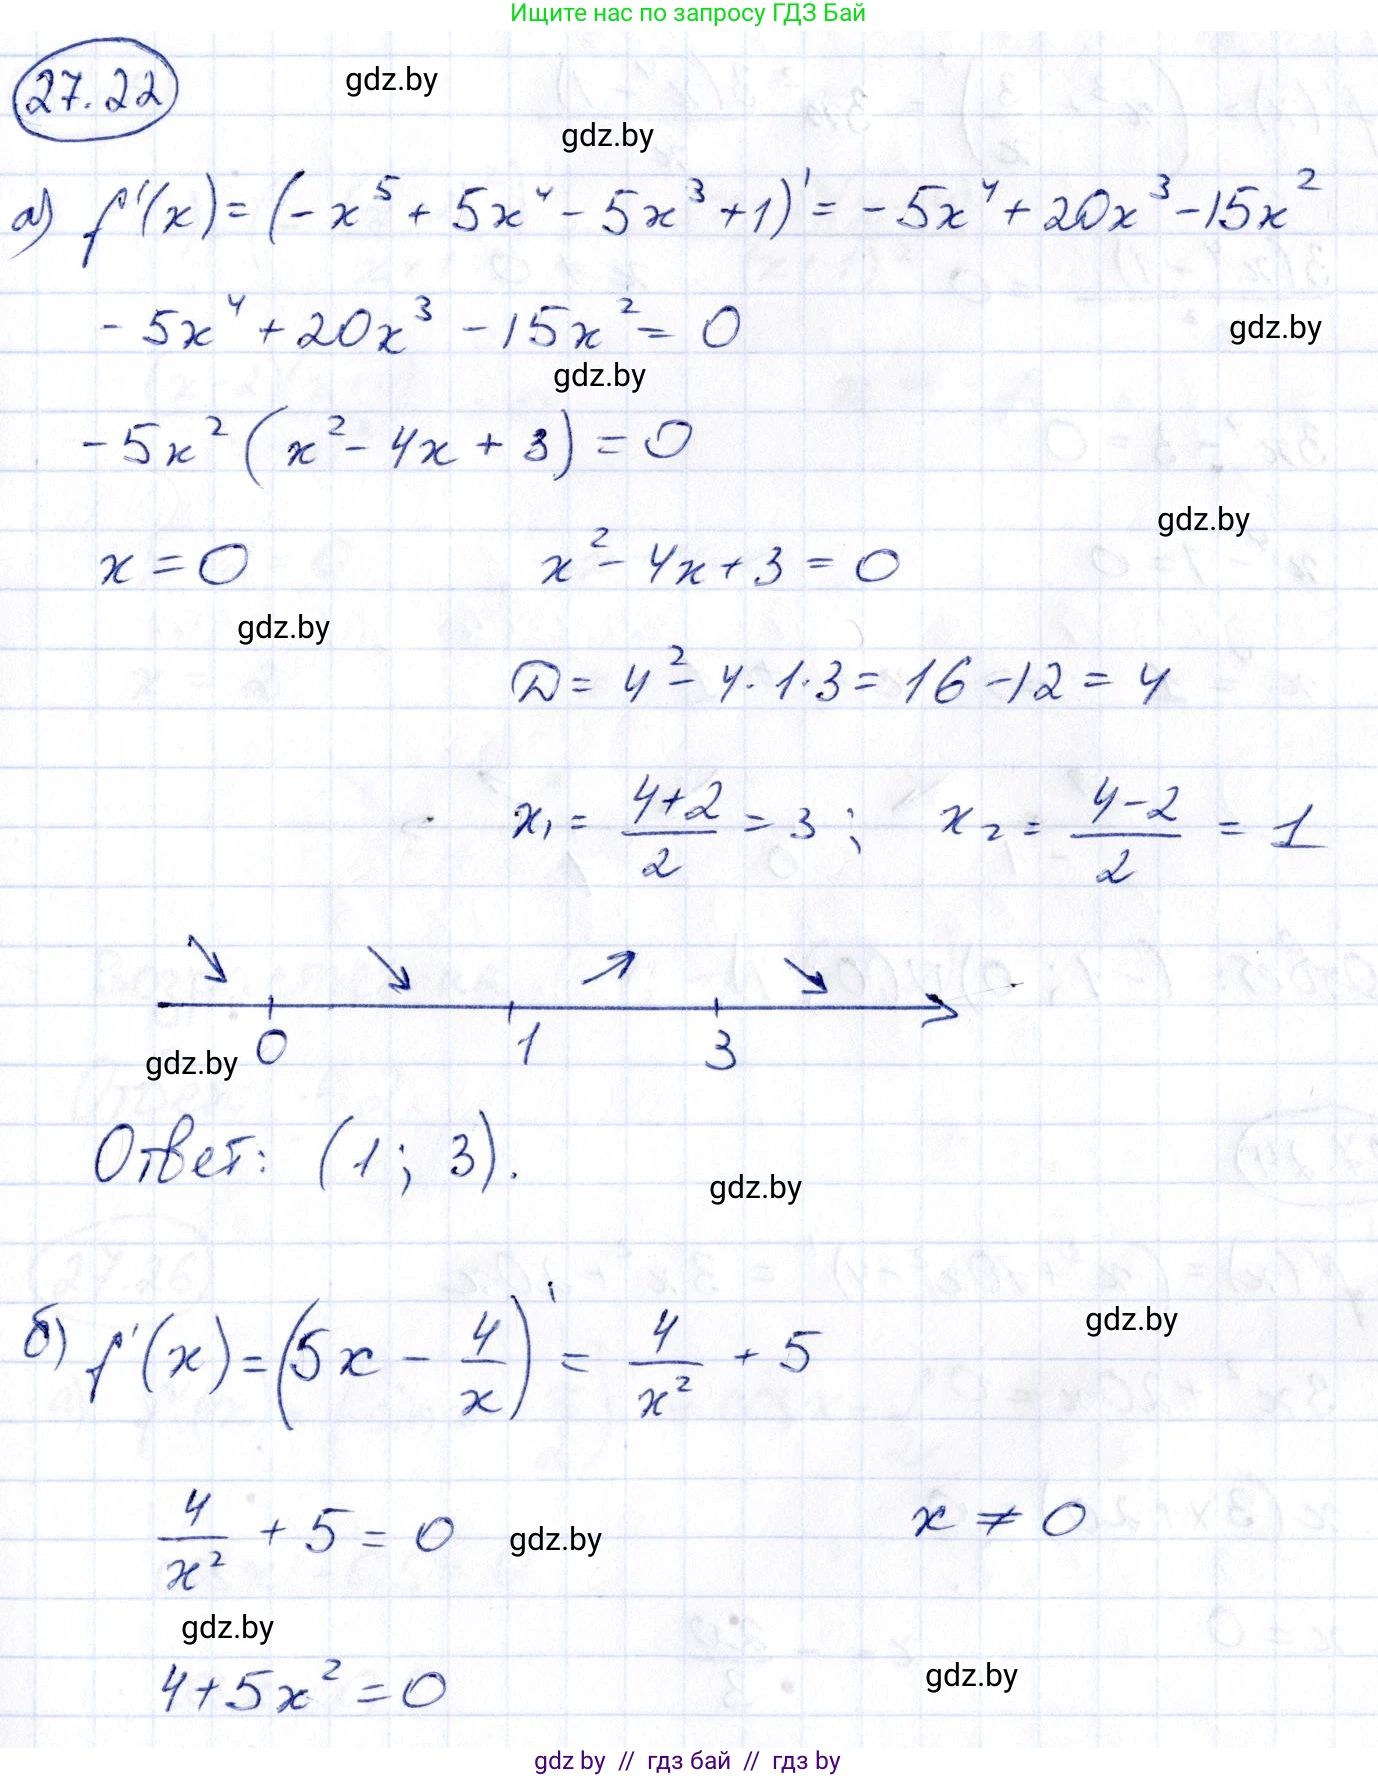 Ищите нас по запросу ГДЗ Бай
27.22
gdz.by
gdz.by
а) f'(x) = (-x⁵ + 5x⁴ - 5x³ + 1)' = -5x⁴ + 20x³ - 15x²
-5x⁴ + 20x³ - 15x² = 0
gdz.by
gdz.by
-5x² (x² - 4x + 3) = 0
gdz.by
x = 0 x² - 4x + 3 = 0
gdz.by
D = 4² - 4·1·3 = 16 - 12 = 4
x₁ = (4+2)/2 = 3; x₂ = (4-2)/2 = 1
0 1 3
gdz.by
Ответ: (1; 3).
gdz.by
gdz.by
б) f'(x) = (5x - 4/x)' = 4/x² + 5
4/x² + 5 = 0 x ≠ 0
gdz.by
gdz.by
4 + 5x² = 0
gdz.by
gdz by // гдз бай // гдз by